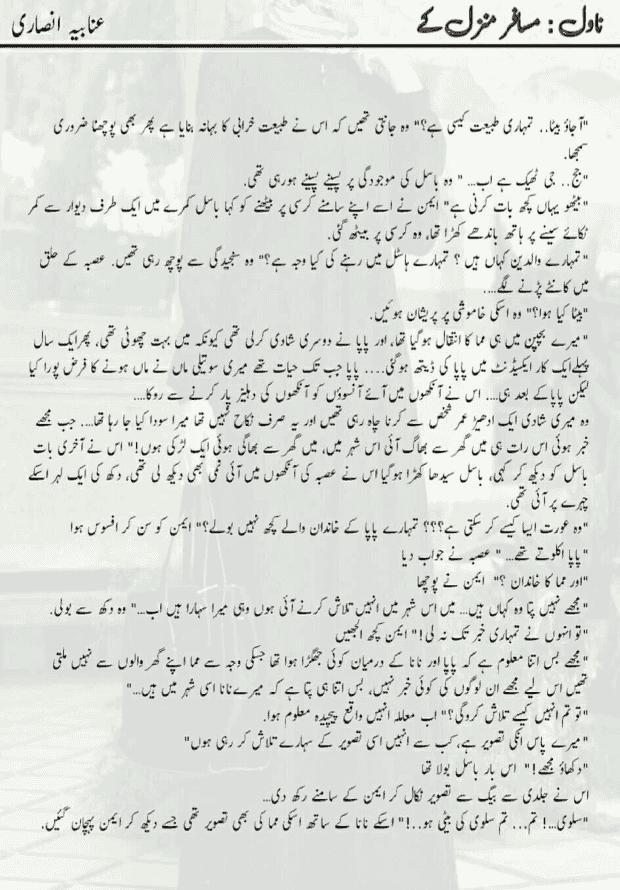 ناول : مسافر منزل کے
عنابیہ انصاری
"آجاؤ بیٹا.. تمہاری طبیعت کیسی ہے؟" وہ جانتی تھیں کہ اس نے طبیعت خرابی کا بہانہ بنایا ہے پھر بھی پوچھنا ضروری
سمجھا.
"جج.. جی ٹھیک ہے اب... " وہ باسل کی موجودگی پر پسینے پسینے ہورہی تھی.
"بیٹھو یہاں کچھ بات کرنی ہے" ایمن نے اسے اپنے سامنے کرسی پر بیٹھنے کو کہا باسل کمرے میں ایک طرف دیوار سے کمر
ٹکائے سینے پر ہاتھ باندھے کھڑا تھا، وہ کرسی پر بیٹھ گئی.
"تمہارے والدین کہاں ہیں ؟ تمہارے ہاسٹل میں رہنے کی کیا وجہ ہے؟" وہ سنجیدگی سے پوچھ رہی تھیں. عصبہ کے حلق
میں کانٹے پڑنے لگے....
"بیٹا کیا ہوا؟" وہ اسکی خاموشی پر پریشان ہوئیں.
"میرے بچپن میں ہی مما کا انتقال ہوگیا تھا، اور پاپا نے دوسری شادی کرلی تھی کیونکہ میں بہت چھوٹی تھی، پھر ایک سال
پہلے ایک کار ایکسیڈنٹ میں پاپا کی ڈیتھ ہوگئی.... پاپا جب تک حیات تھے میری سوتیلی ماں نے ماں ہونے کا فرض پورا کیا
لیکن پاپا کے بعد ہی.... اس نے آنکھوں میں آئے آنسوؤں کو آنکھوں کی دہلیز پار کرنے سے روکا....
وہ میری شادی ایک ادھیڑ عمر شخص سے کرنا چاہ رہی تھیں اور یہ صرف نکاح نہیں تھا میرا سودا کیا جا رہا تھا.... جب مجھے
خبر ہوئی اس رات ہی میں گھر سے بھاگ آئی اس شہر میں، میں گھر سے بھاگی ہوئی ایک لڑکی ہوں!" اس نے آخری بات
باسل کو دیکھ کر کہی، باسل سیدھا کھڑا ہوگیا اس نے عصبہ کی آنکھوں میں آئی نمی بھی دیکھ لی تھی، دکھ کی ایک لہر اسکے
چہرے پر آئی تھی.
"وہ عورت ایسا کیسے کر سکتی ہے؟؟؟ تمہارے پاپا کے خاندان والے کچھ نہیں بولے؟" ایمن کو سن کر افسوس ہوا
"پاپا اکلوتے تھے..." عصبہ نے جواب دیا
"اور مما کا خاندان ؟" ایمن نے پوچھا
"مجھے نہیں پتا وہ کہاں ہیں... میں اس شہر میں انہیں تلاش کرنے آئی ہوں وہی میرا سہارا ہیں اب..." وہ دکھ سے بولی.
"تو انہوں نے تمہاری خبر تک نہ لی!" ایمن کچھ الجھیں
"مجھے بس اتنا معلوم ہے کہ پاپا اور نانا کے درمیان کوئی جھگڑا ہوا تھا جسکی وجہ سے مما اپنے گھر والوں سے نہیں ملتی
تھیں اس لیے مجھے ان لوگوں کی کوئی خبر نہیں، بس اتنا ہی پتا ہے کہ میرے نانا اسی شہر میں ہیں..."
"تو تم انہیں کیسے تلاش کروگی؟" اب معاملہ انہیں واقع پیچیدہ معلوم ہوا.
"میرے پاس انکی تصویر ہے، کب سے انہیں اسی تصویر کے سہارے تلاش کر رہی ہوں"
"دکھاؤ مجھے!" اس بار باسل بولا تھا
اس نے جلدی سے بیگ سے تصویر نکال کر ایمن کے سامنے رکھ دی...
"سلوی...! تم... تم سلوی کی بیٹی ہو..!" اسکے نانا کے ساتھ اسکی مما کی بھی تصویر تھی جسے دیکھ کر ایمن پہچان گئیں.